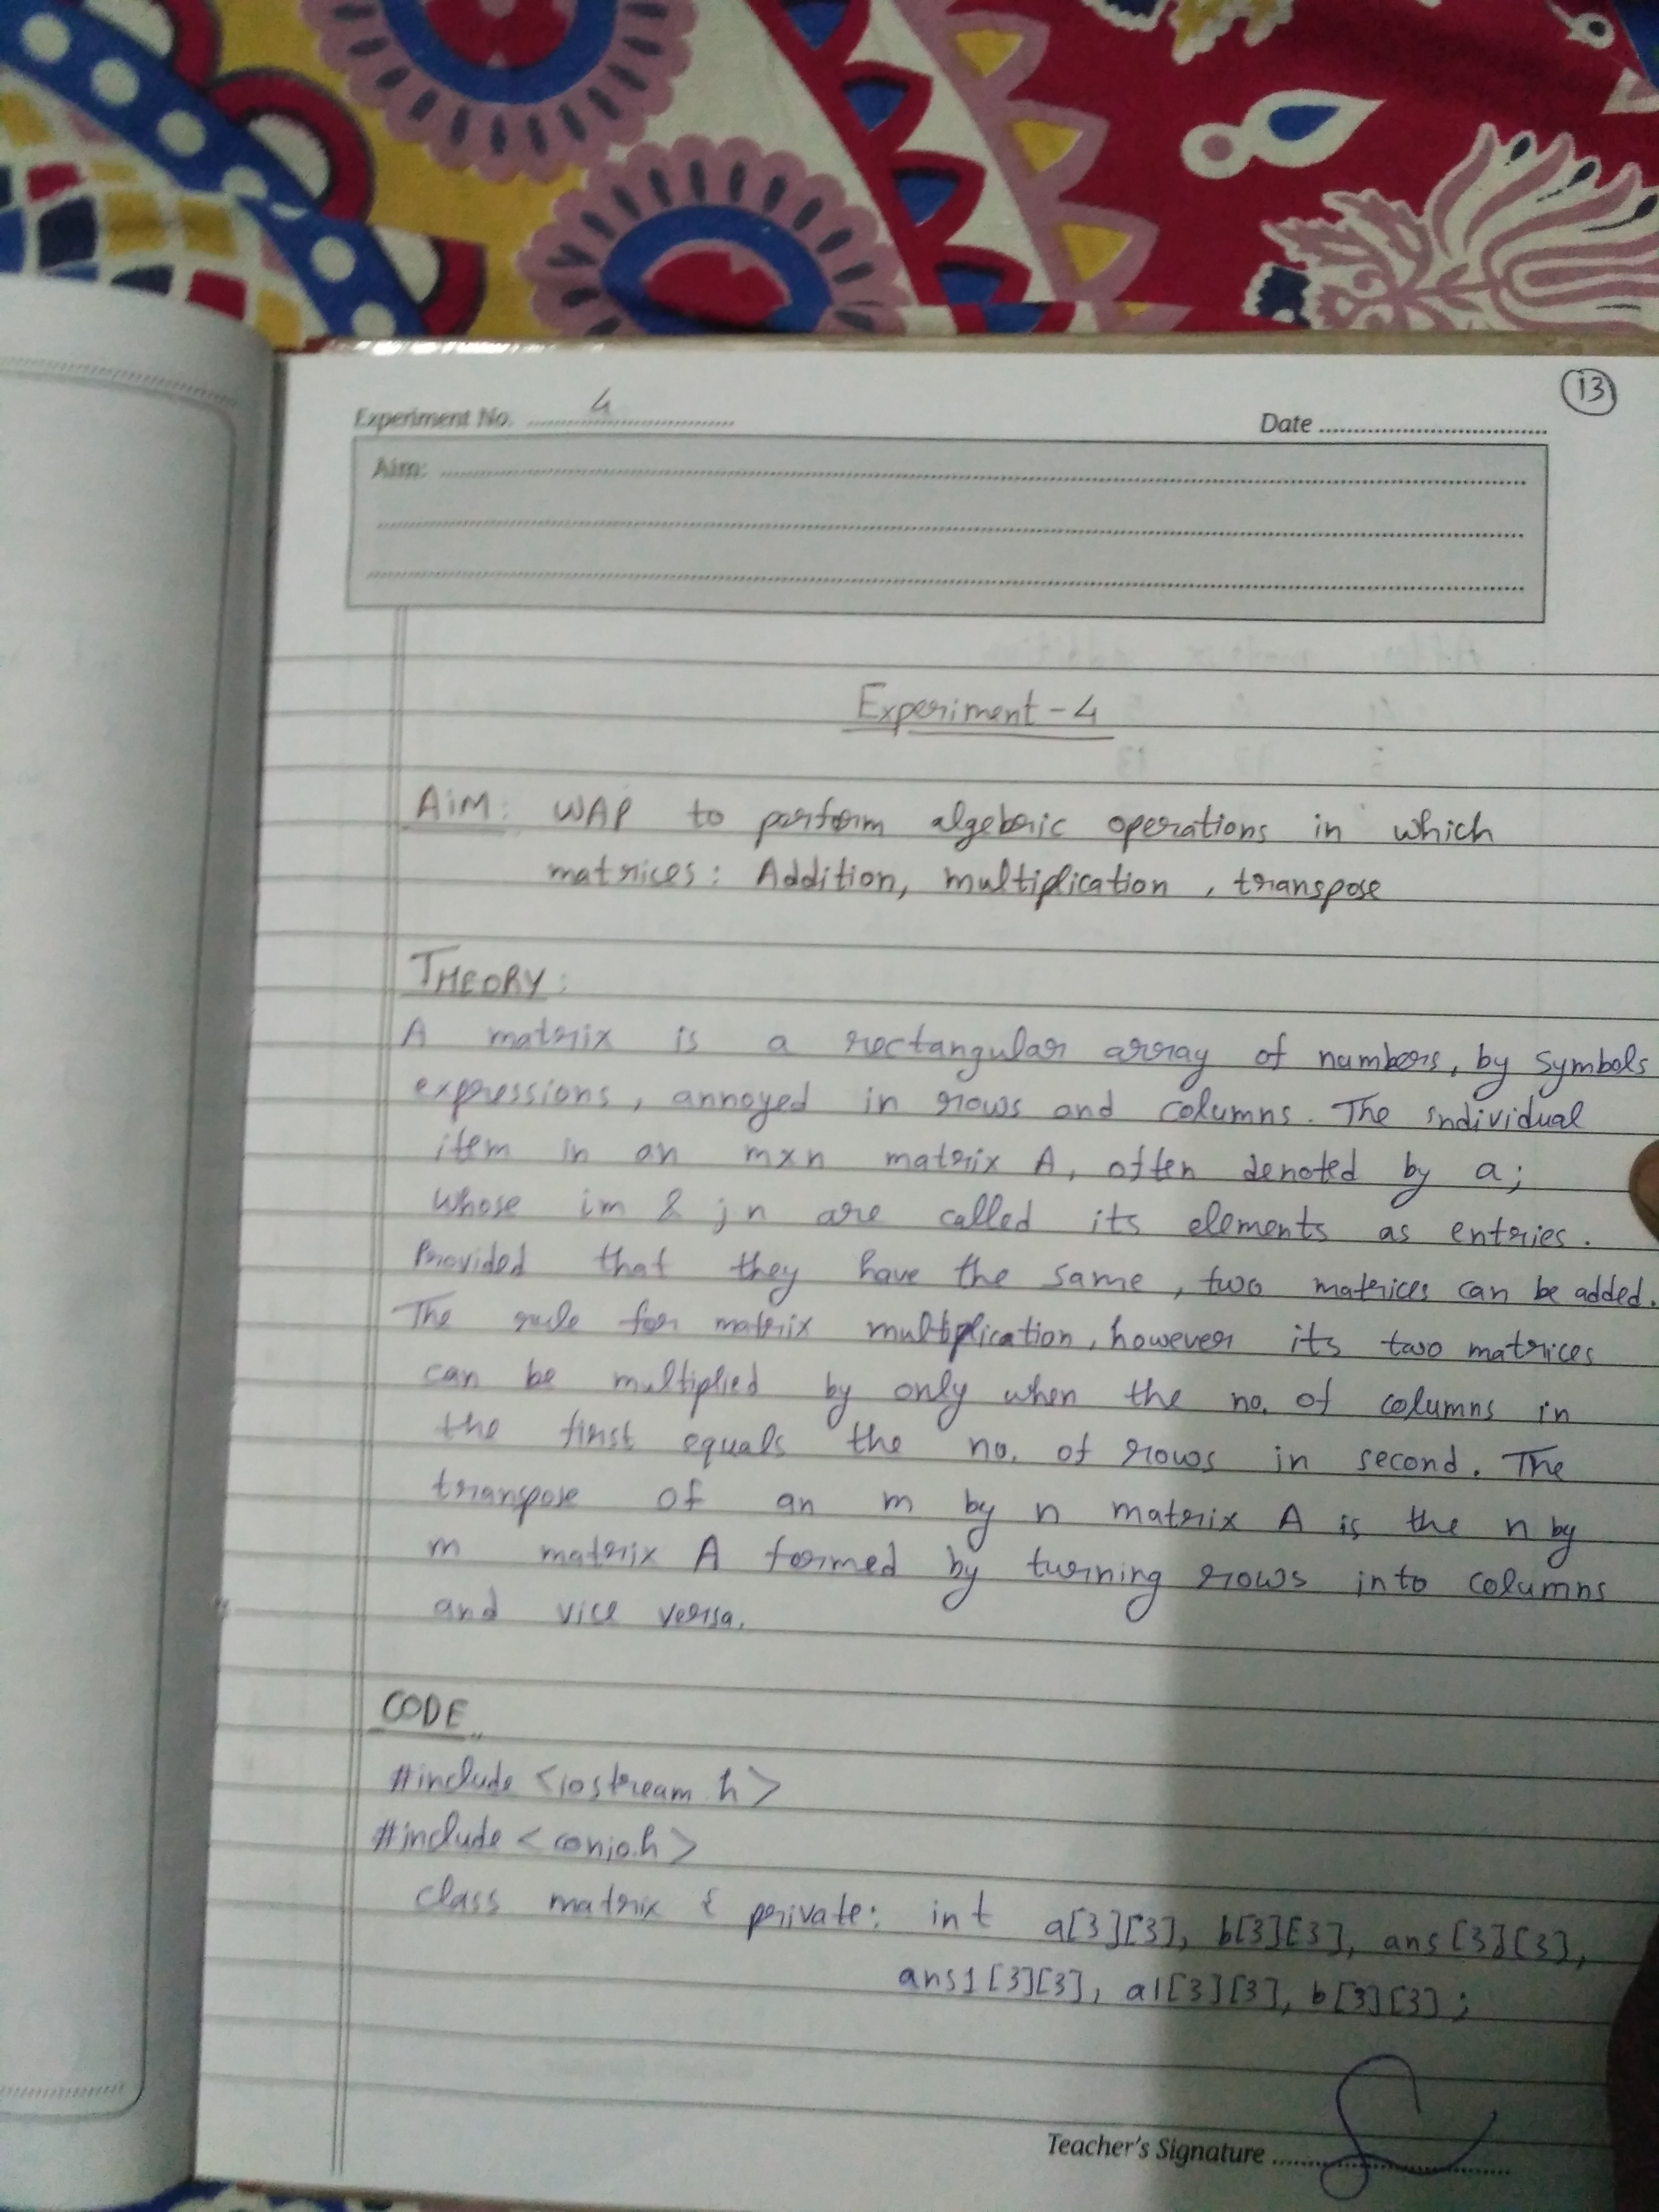 13
Experiment No. 4
Date
Aim:
Experiment - 4
AIM: WAP to perform algebric operations in which
matrices: Addition, multiplication, transpose
THEORY:
A matrix is a rectangular array of numbers, by symbols
expressions, annoyed in rows and columns. The individual
item in an mxn matrix A, often denoted by a;
whose im & jn are called its elements as entries.
Provided that they have the same, two matrices can be added.
The rule for matrix multiplication, however its two matrices
can be multiplied by only when the no. of columns in
the first equals the no. of rows in second. The
transpose of an m by n matrix A is the n by
m matrix A formed by turning rows into columns
and vice versa.
CODE
#include <iostream.h>
#include <conio.h>
class matrix { private: int a[3][3], b[3][3], ans[3][3],
ans1[3][3], a1[3][3], b[3][3];
Teacher's Signature